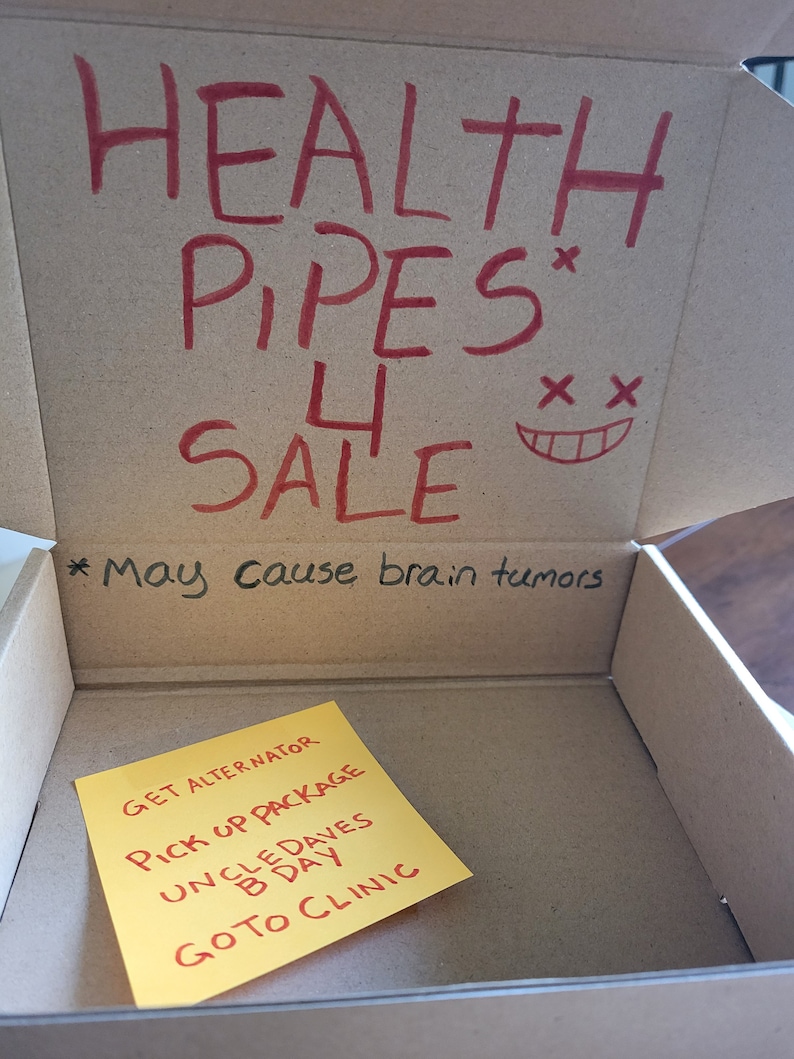 HEALTH
PIPES*
4
SALE
*May cause brain tumors
GET ALTERNATOR
PICK UP PACKAGE
UNCLE DAVES
B DAY
GO TO CLINIC